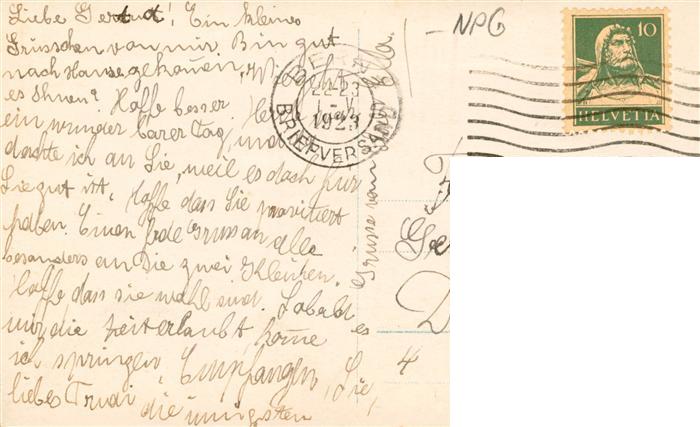 Liebe Gertrud! Ein kleines
Grüsschen von mir. Bin gut
nach Hause gekommen, Wie geht
es Ihnen? Hoffe besser.
ein wunder barer Tag, und
dachte ich an Sie, weil es doch für
Sie gut ist. Hoffe dass Sie
haben. Einen Gruss an alle
besonders an die zwei Kleinen.
Hoffe dass sie wohl sind. Sobald es
mir die Zeit erlaubt, kome
ich springen. Empfangen, Sie,
liebes Trudi, die innigsten
Grüsse von Ella.
NPG
22-23
1-V
1923
BRIEFVERSAND
10
HELVETIA
4